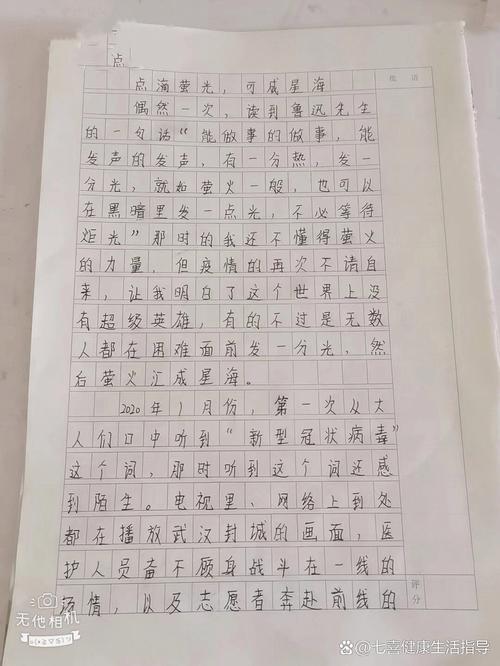 点
点滴萤光，可成星海
批语
偶然一次，读到鲁迅先生
的一句话“能做事的做事，能
发声的发声，有一分热，发一
分光，就如萤火一般，也可以
在黑暗里发一点光，不必等待
炬光”那时的我还不懂得萤火
的力量，但疫情的再次不请自
来，让我明白了这个世界上没
有超级英雄，有的不过是无数
人都在困难面前发一分光，然
后萤火汇成星海。
2020年1月份，第一次从大
人们口中听到“新型冠状病毒”
这个词，那时听到这个词还感
到陌生。电视里、网络上到处
都在播放武汉封城的画面，医
护人员奋不顾身战斗在一线的
场情，以及志愿者奔赴前线的
评分
无他相机
@七喜健康生活指导